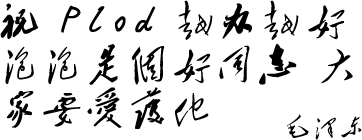 祝 Plod 越办越好
泡泡是個好同志 大
家要愛護他
毛澤东